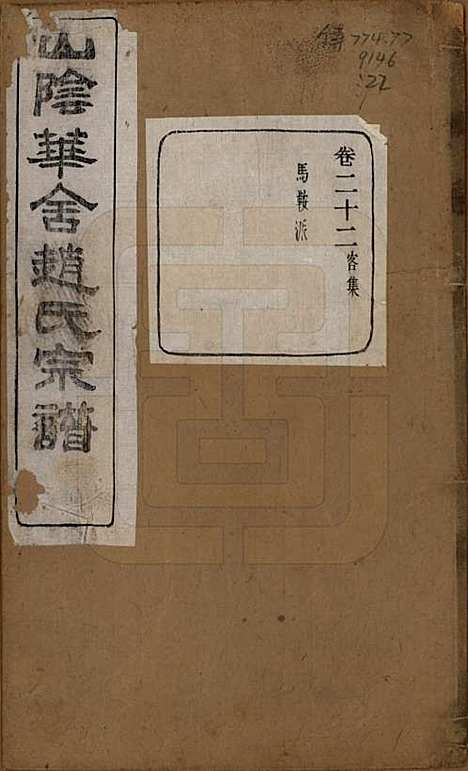 山陰華舍趙氏宗譜
卷二十二 客集
馬鞍派
傳 774.77
9146
:22